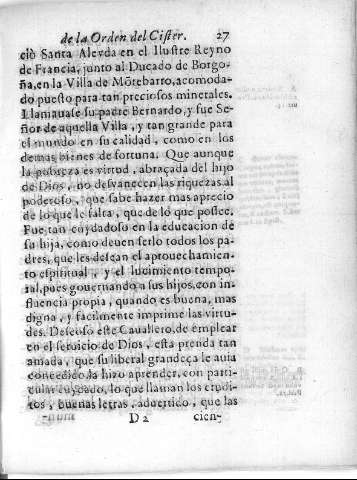 de la Orden del Cister. 27
ciò Santa Aleyda en el Ilustre Reyno
de Francia, junto al Ducado de Borgo-
ña, en la Villa de Mõtebarro, acomoda-
do puesto para tan preciosos minerales.
Llamauase su padre Bernardo, y fue Se-
ñor de aquella Villa, y tan grande para
el mundo en su calidad, como en los
demas bienes de fortuna. Que aunque
la pobreza es virtud, abraçada del hijo
de Dios, no desvanecen las riquezas al
poderoso, que sabe hazer mas aprecio
de lo que le falta, que de lo que possee.
Fue tan cuydadoso en la educacion de
su hija, como deuen serlo todos los pa-
dres, que les desean el aprouechamien-
to espiritual, y el lucimiento tempo-
ral, pues gouernando a sus hijos, con in-
fluencia propia, quando es buena, mas
digna, y facilmente imprime las virtu-
des. Deseoso este Cauallero, de emplear
en el seruicio de Dios, esta prenda tan
amada, que su liberal grandeça le auia
concedido, la hizo aprender, con parti-
cular cuydado, lo que llaman los erudi-
tos, buenas letras, aduertido, que las
D2 cien-